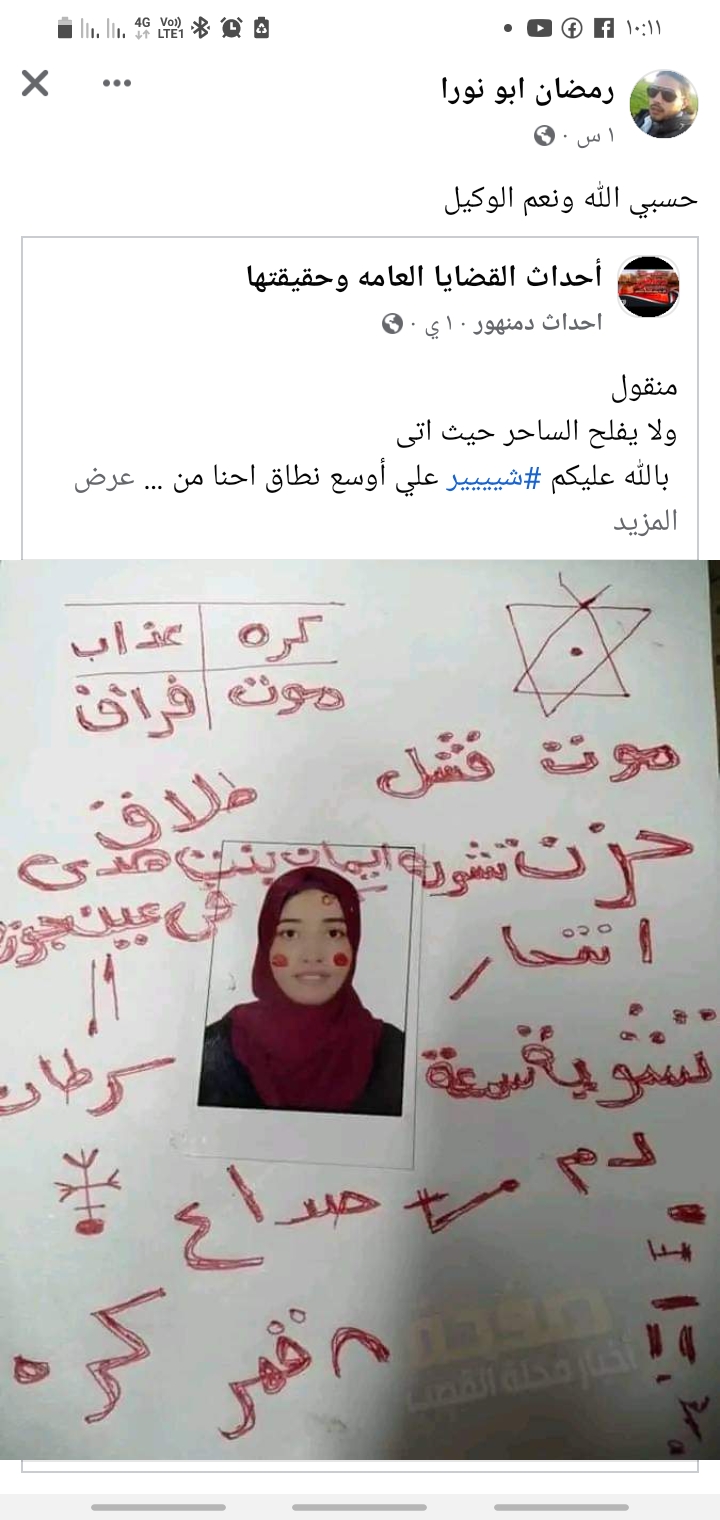 ١٠:١١
4G
Vo))
LTE1
رمضان ابو نورا
١ س ·
حسبي الله ونعم الوكيل
أحداث القضايا العامه وحقيقتها
احداث دمنهور · ١٠ ي ·
منقول
ولا يفلح الساحر حيث اتى
بالله عليكم #شيييير علي أوسع نطاق احنا من ... عرض
المزيد
كره عذاب
موت فراق
موت فشل
طلاق
حزن
ايمان بنت هدى
في عين جوز
انتحار
تشوية سمعة
سرطان
دم
صداع
قهر
كره
أخبار محلة القصب